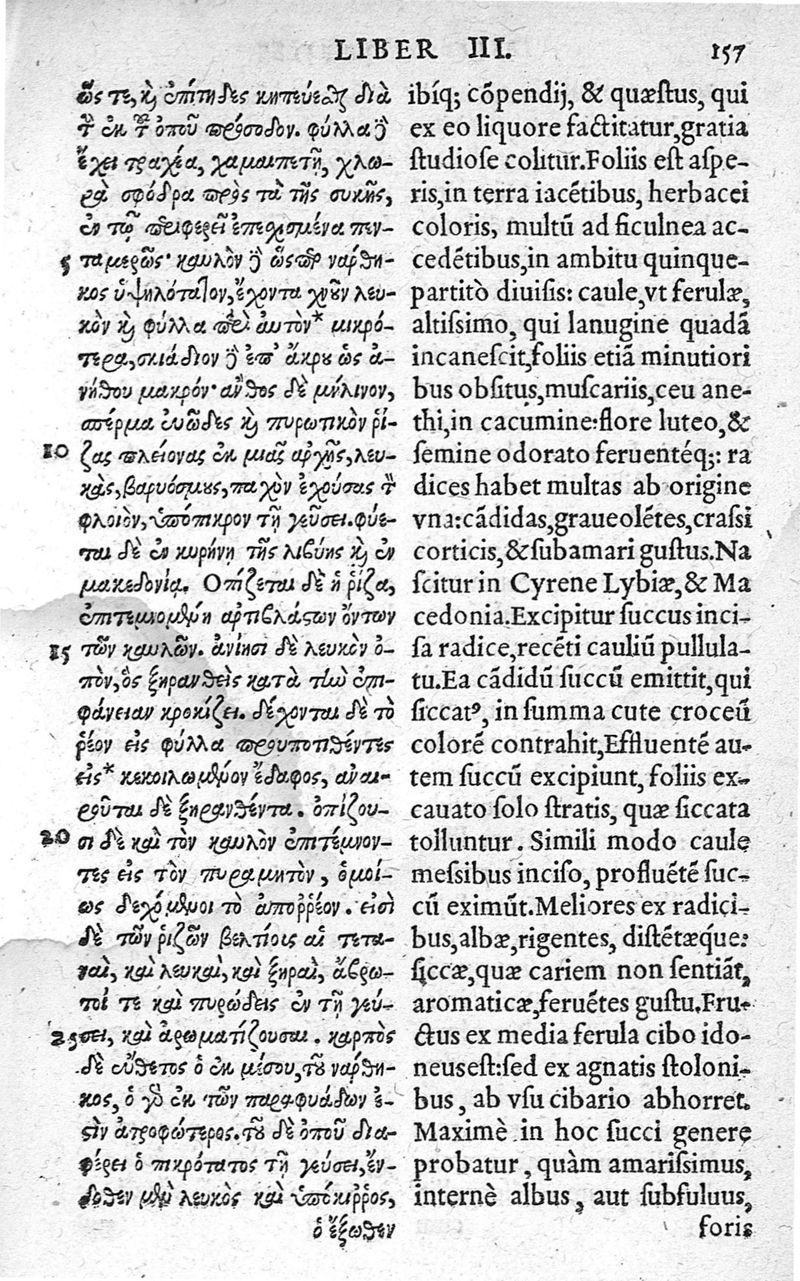 LIBER III. 157
ὥς τε, κὶ ἐπίτηδες κηπεύεσθαι διὰ
τ̀ ἐκ τ̃ ὀποῦ πρόσοδον. φύλλα ἢ
ἔχει τραχέα, χαμαιπετῆ, χλω-
ρὰ σφόδρα πρὸς τὰ τῆς συκῆς,
ἐν τῷ περιφερεῖ ἐπεσχισμένα πεν-
5 ταμερῶς· καυλὸν ἢ ὥσπερ ναρθη-
κος ὑψηλότατον, ἔχοντα χνοῦν λευ-
κὸν κὶ φύλλα περὶ αὐτὸν* μικρό-
τερα, σκιάδιον ἢ ἐπ' ἄκρου ὡς ἀ-
νήθου μακρόν· ἄνθος δὲ μήλινον,
σπέρμα εὐῶδες κὶ πυρωτικὸν ῥί-
10 ζας πλείονας ἐκ μιᾶς ἀρχῆς, λευ-
κὰς, βαρυόσμους, παχὺν ἐχούσας τ̀
φλοιὸν, ὑπόπικρον τῇ γεύσει. φύε-
ται δὲ ἐν κυρήνῃ τῆς λιβύης κὶ ἐν
μακεδονίᾳ. Οπίζεται δὲ ἡ ῥίζα,
ἐπιτεμνομένη ἀρτιβλάστων ὄντων
15 τῶν καυλῶν. ἀνίησι δὲ λευκὸν ὀ-
πὸν, ὃς ξηρανθεὶς κατὰ τὴν ἐπι-
φάνειαν κροκίζει. δέχονται δὲ τὸ
ῥέον εἰς φύλλα προυποτιθέντες
εἰς* κεκοιλωμένον ἔδαφος, ἀναι-
ροῦται δὲ ξηρανθέντα. ὀπίζου-
20 σι δὲ καὶ τὸν καυλὸν ἐπιτέμνον-
τες εἰς τὸν πυραμητὸν, ὁμοί-
ως δεχόμενοι τὸ ἀποῤῥέον. εἰσὶ
δὲ τῶν ῥιζῶν βελτίους αἱ τετα-
ναὶ, καὶ λευκαὶ, καὶ ξηραὶ, ἄβρω-
τοί τε καὶ πυρώδεις ἐν τῇ γεύ-
25 σει, καὶ ἀρωματίζουσαι. καρπὸς
δὲ εὔθετος ὁ ἐκ μέσου, τοῦ ναρθη-
κος, ὁ γὰρ ἐκ τῶν παραφυάδων ἐ-
σὶν ἀτροφώτερος. τοῦ δὲ ὀποῦ δια-
φέρει ὁ πικρότατος τῇ γεύσει, ἔν-
δοθεν μὲν λευκὸς καὶ ὑπόκιῤῥος,
ὁ ἔξωθεν
ibíq; cōpendij, & quæstus, qui
ex eo liquore factitatur, gratia
studiose colitur. Foliis est aspe-
ris, in terra iacētibus, herbacei
coloris, multū ad ficulnea ac-
cedētibus, in ambitu quinque-
partitò diuisis: caule, vt ferulæ,
altissimo, qui lanugine quadā
incanescit, foliis etiā minutiori
bus obsitus, muscariis, ceu ane-
thi, in cacumine: flore luteo, &
semine odorato feruentéq;: ra
dices habet multas ab origine
vna: cādidas, graueolētes, crassi
corticis, & subamari gustus. Na
scitur in Cyrene Lybiæ, & Ma
cedonia. Excipitur succus inci-
sa radice, recēti cauliū pullula-
tu. Ea cādidū succū emittit, qui
siccatꝰ, in summa cute croceū
colorē contrahit, Effluentē au-
tem succū excipiunt, foliis ex-
cauato solo stratis, quæ siccata
tolluntur. Simili modo caule
messibus inciso, profluētē suc-
cū eximūt. Meliores ex radici-
bus, albæ, rigentes, distētæque:
siccæ, quæ cariem non sentiāt,
aromaticæ, feruētes gustu. Fru-
ctus ex media ferula cibo ido-
neus est: sed ex agnatis stoloni-
bus, ab vsu cibario abhorret.
Maximè in hoc succi genere
probatur, quàm amarissimus,
internè albus, aut subfuluus,
foris